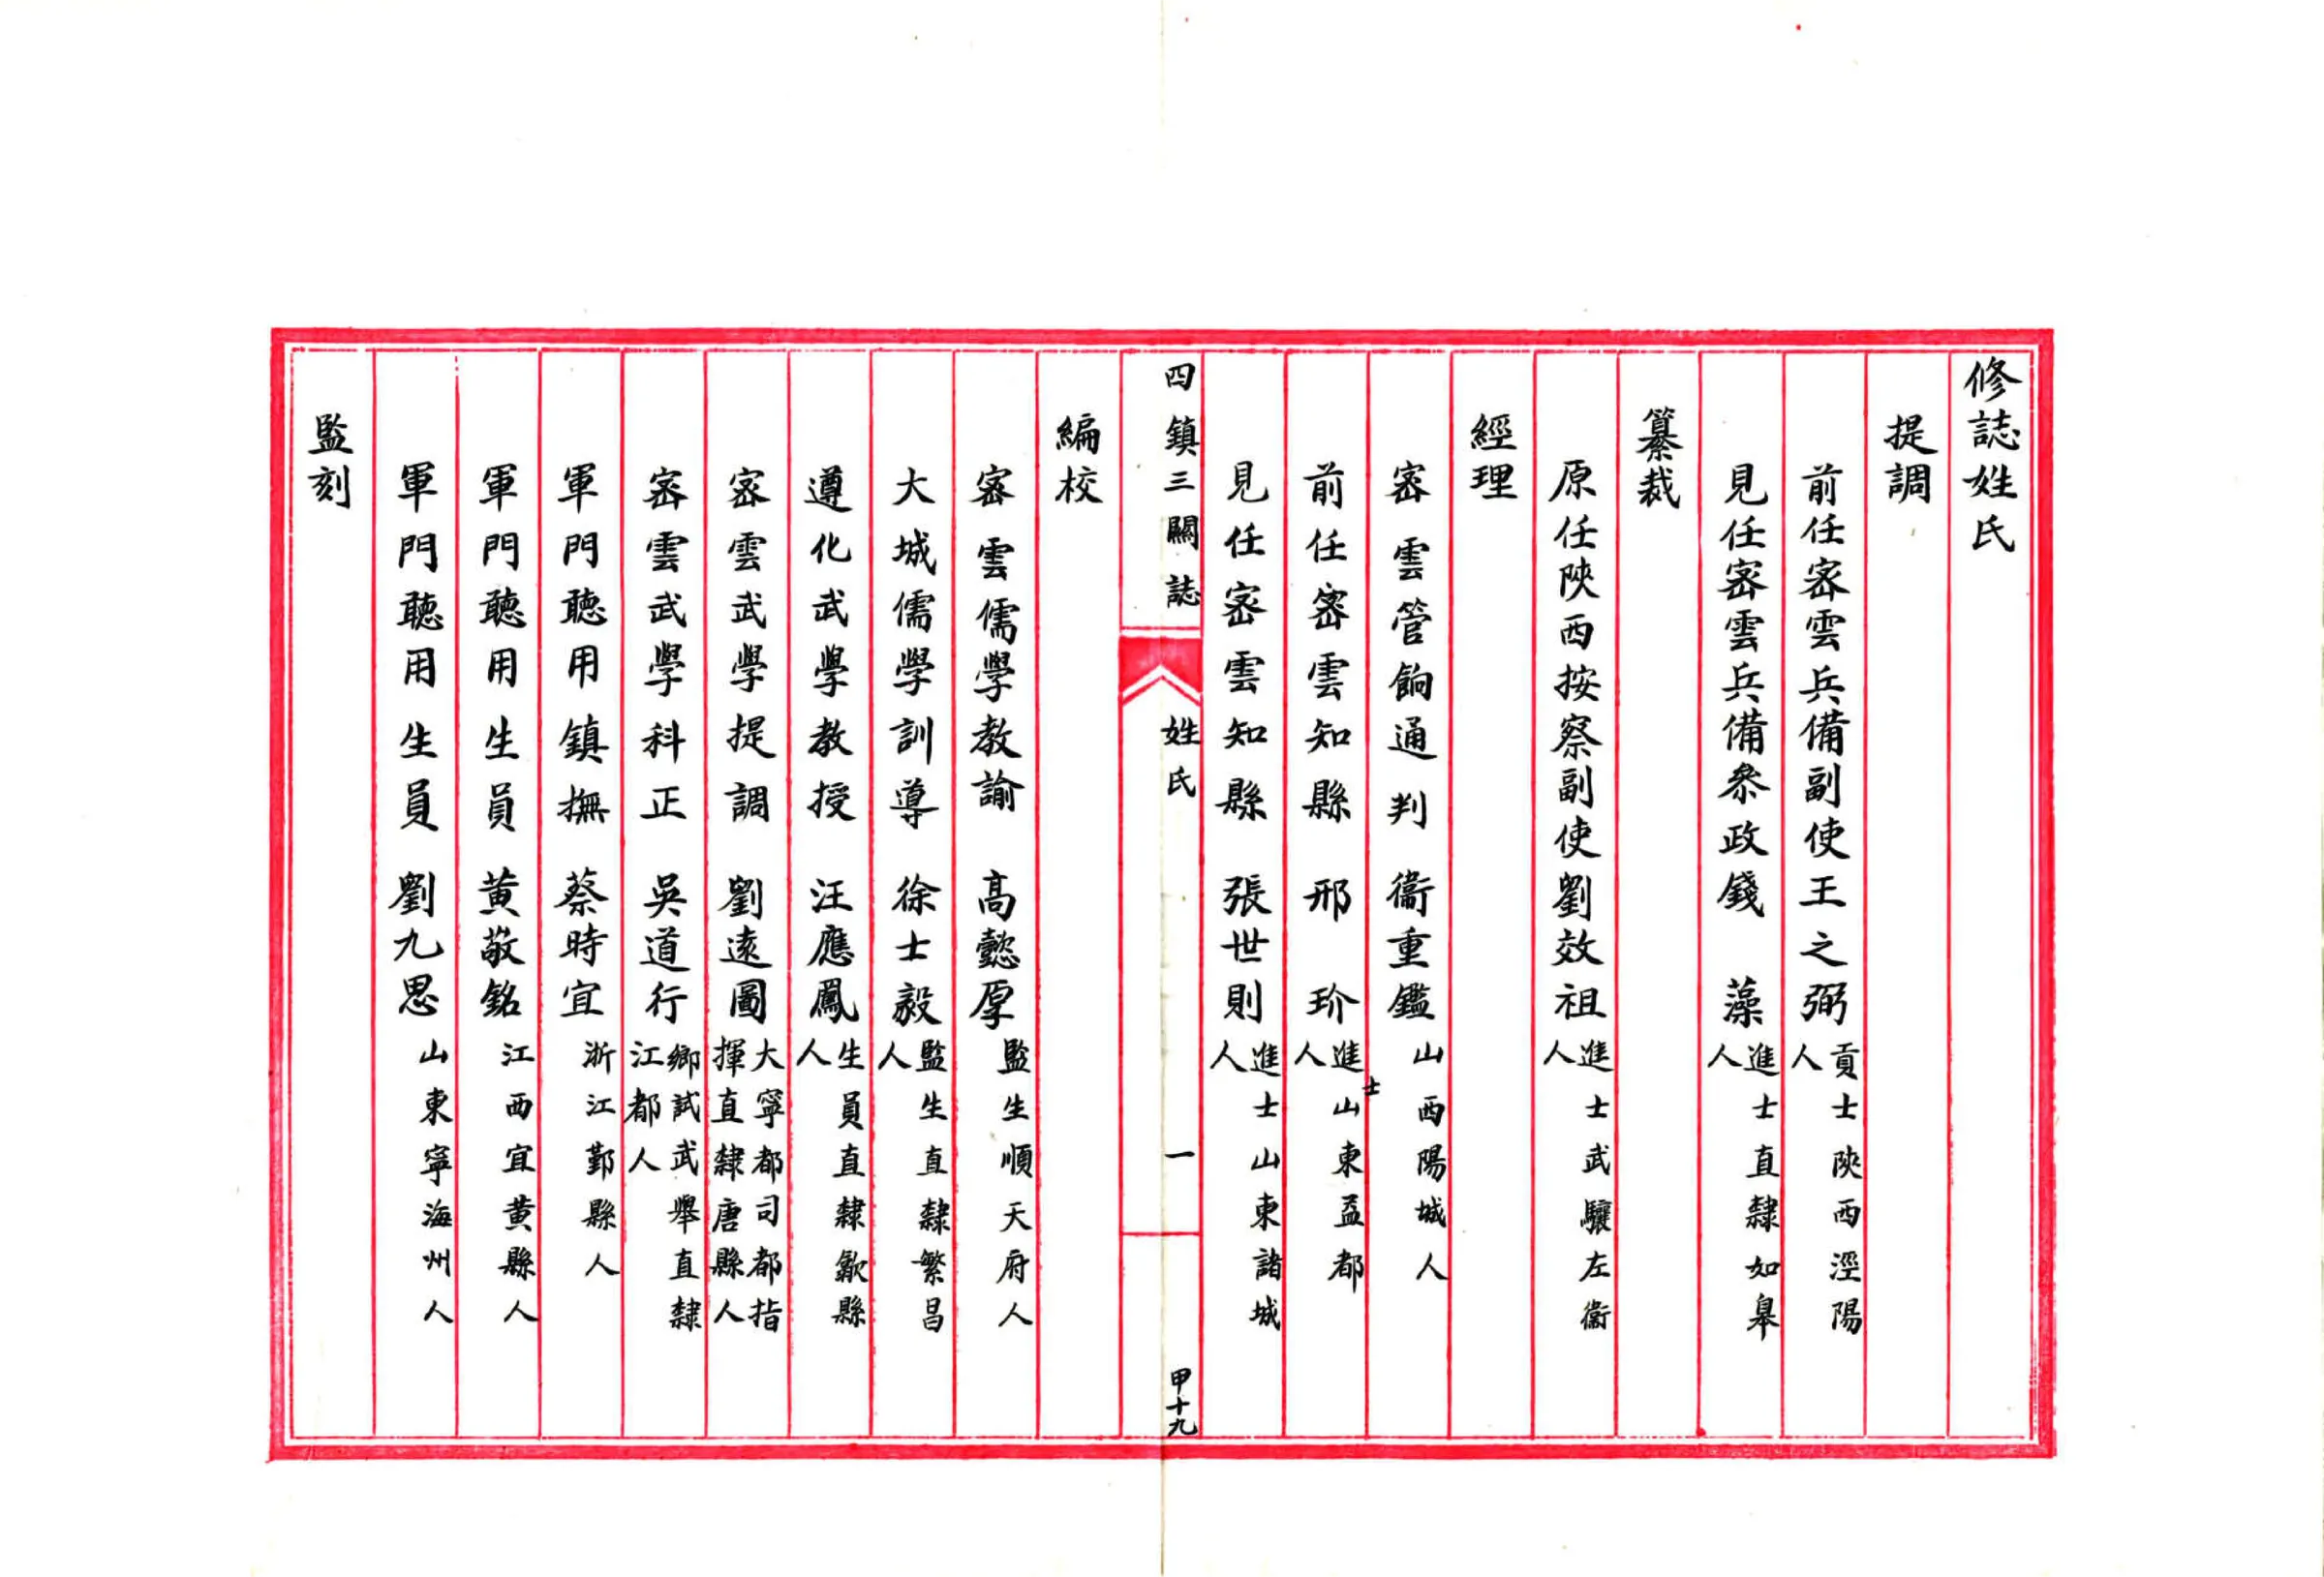 修誌姓氏
提調
前任密雲兵備副使王之弼貢士陝西涇陽人
見任密雲兵備叅政錢 藻進士直隸如皋人
纂裁
原任陝西按察副使劉效祖進士武驤左衞人
經理
密雲管餉通判 衞重鑑山西陽城人
前任密雲知縣 邢 玠進士山東益都人
見任密雲知縣 張世則進士山東諸城人
四鎮三關誌 姓氏 一 甲十九
編校
密雲儒學教諭 高懿厚監生順天府人
大城儒學訓導 徐士毅監生直隸繁昌人
遵化武學教授 汪應鳳生員直隸歙縣人
密雲武學提調 劉遠圖大寧都司都指揮直隸唐縣人
密雲武學科正 吳道行鄉試武舉直隸江都人
軍門聽用鎮撫 蔡時宜浙江鄞縣人
軍門聽用生員 黃敬銘江西宜黃縣人
軍門聽用生員 劉九思山東寧海州人
監刻